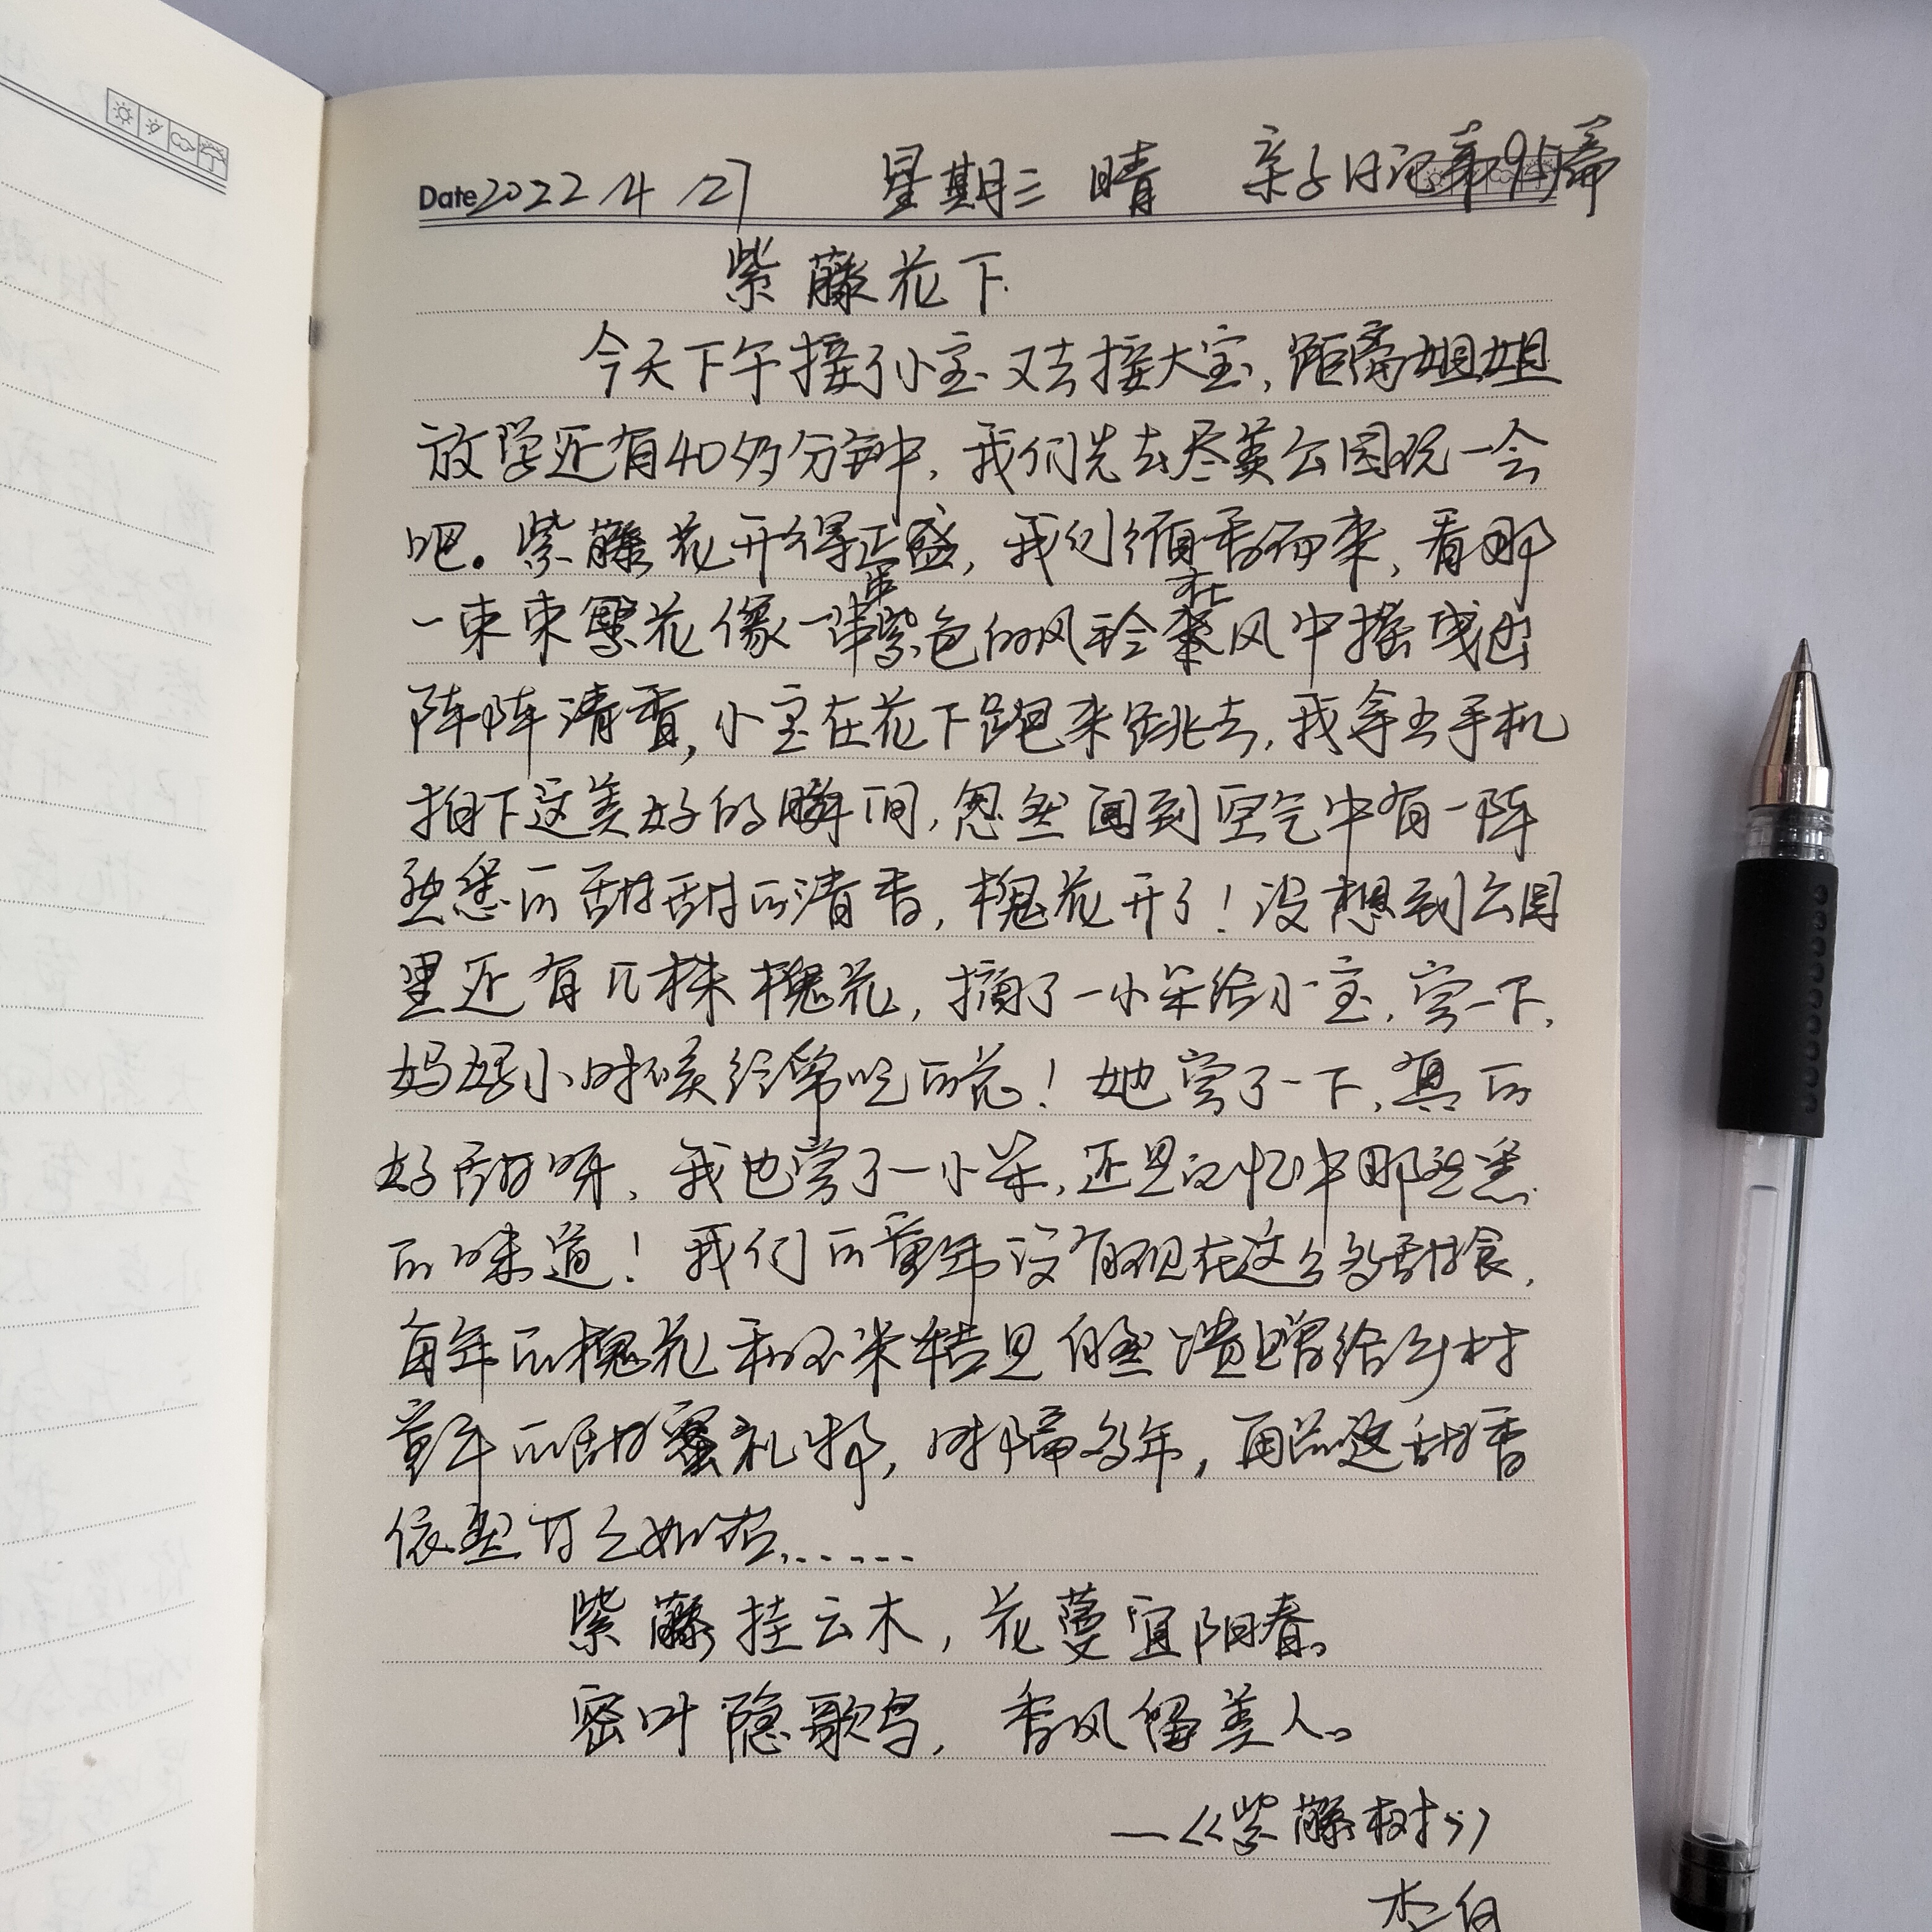 Date 2022/4/27 星期三 晴 亲子日记第95篇
紫藤花下
今天下午接了小宝又去接大宝,距离姐姐
放学还有40多分钟,我们先去尽美公园玩一会
吧。紫藤花开得正盛,我们循香而来,看那
一束束繁花像一串串紫色的风铃在风中摇曳出
阵阵清香,小宝在花下跑来跳去,我拿出手机
拍下这美好的瞬间,忽然闻到空气中有一阵
熟悉的甜甜的清香,槐花开了!没想到公园
里还有几株槐花,摘了一小朵给小宝,尝一下,
妈妈小时候经常吃的花!她尝了一下,真的
好甜呀,我也尝了一小朵,还是记忆中那熟悉
的味道!我们的童年没有现在这么多甜食,
每年的槐花和玉米秸是自然馈赠给乡村
童年的甜蜜礼物,时隔多年,再品这甜香
依然甘之如饴......
紫藤挂云木,花蔓宜阳春。
密叶隐歌鸟,香风留美人。
—《紫藤树》
李白